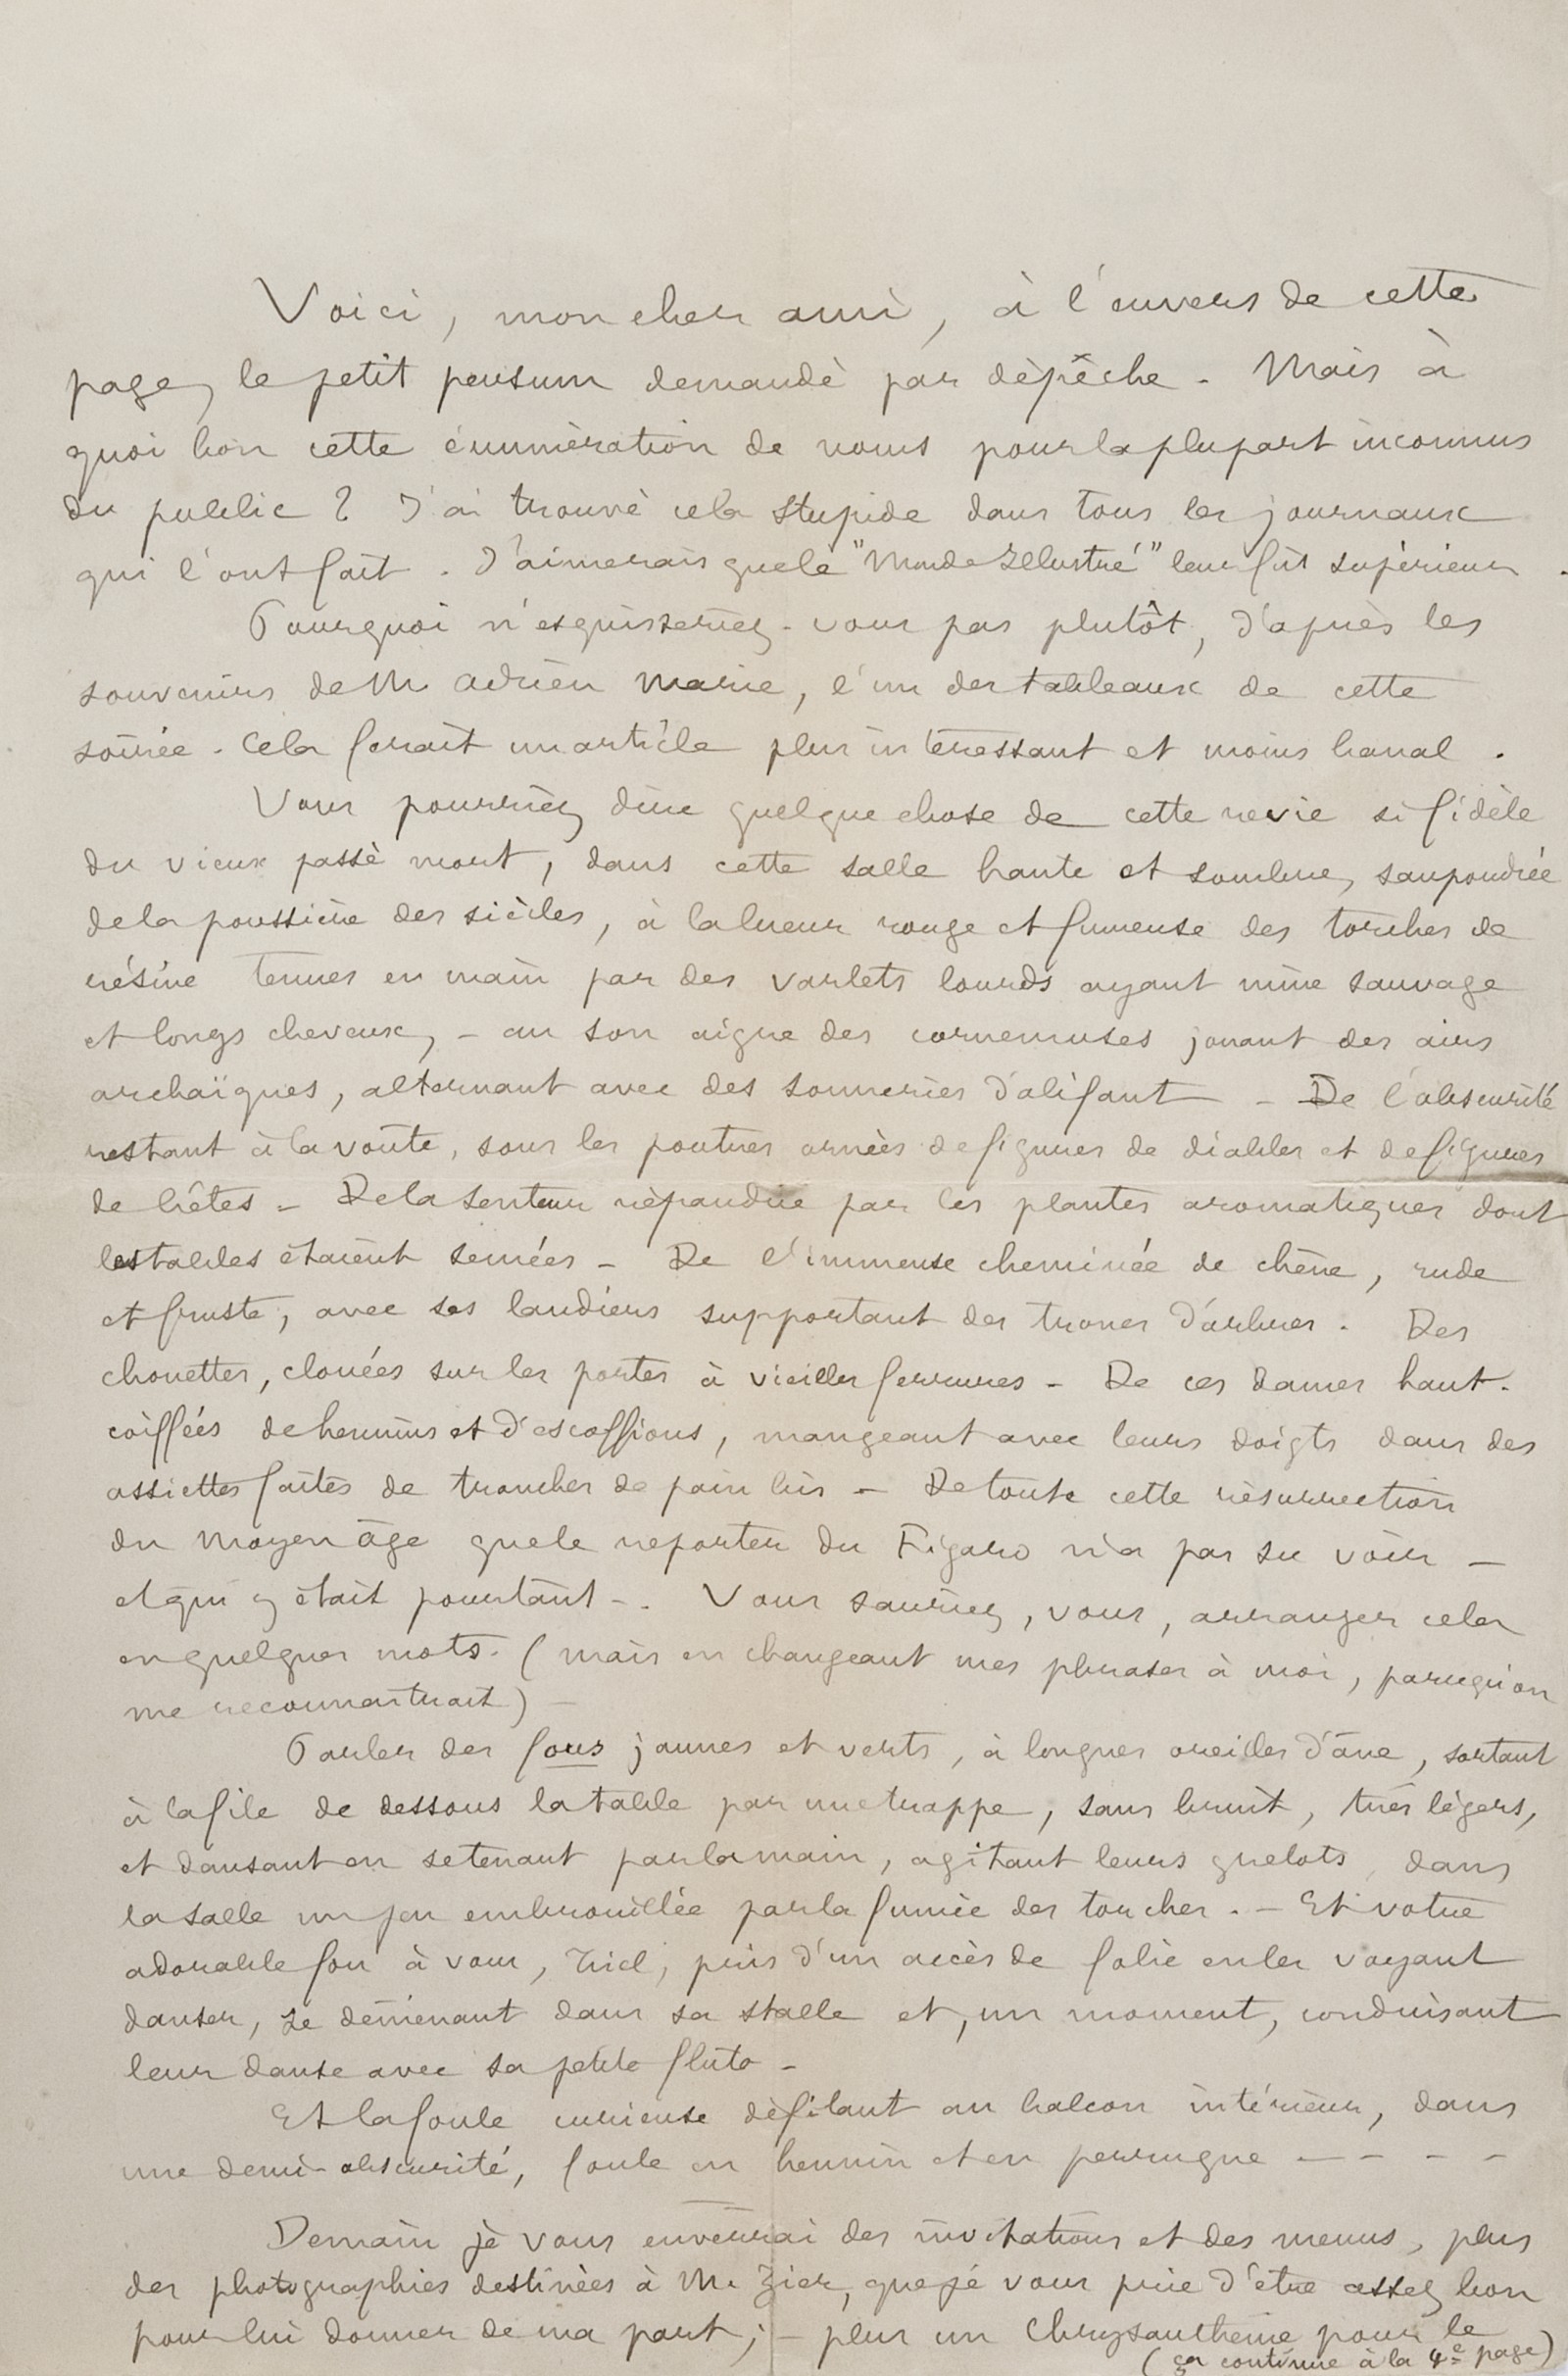 Voici, mon cher ami, à l'envers de cette
page, le petit pensum demandé par dépêche. Mais à
quoi bon cette énumération de noms pour la plupart inconnus
du public ? J'ai trouvé cela stupide dans tous les journaux
qui l'ont fait. J'aimerais que le "Monde Illustré" leur fût supérieur.
Pourquoi n'esquisseriez-vous pas plutôt, d'après les
souvenirs de M. Adrien Marie, l'un des tableaux de cette
soirée. Cela ferait un article plus intéressant et moins banal.
Vous pourriez dire quelque chose de cette revie si fidèle
du vieux passé mort, dans cette salle haute et sombre, saupoudrée
de la poussière des siècles, à la lueur rouge et fumeuse des torches de
résine tenues en main par des varlets lourds ayant mine sauvage
et longs cheveux, - au son aigre des cornemuses jouant des airs
archaïques, alternant avec des sonneries d'olifant - De l'obscurité
restant à la voûte, sous les poutres ornées de figures de diables et de figures
de bêtes - De la senteur répandue par les plantes aromatiques dont
les tables étaient semées - De l'immense cheminée de chêne, rude
et fruste, avec ses landiers supportant des troncs d'arbres. Des
chouettes, clouées sur les portes à vieilles ferrures - De ces dames haut-
coiffées de hennins et d'escoffions, mangeant avec leurs doigts dans des
assiettes faites de tranches de pain bis - De toute cette résurrection
du Moyen âge que le reporter du Figaro n'a pas su voir -
et qui y était pourtant -. Vous sauriez, vous, arranger cela
en quelques mots. (mais en changeant mes phrases à moi, parcequ'on
me reconnaîtrait) -
Parler des fous jaunes et verts, à longues oreilles d'âne, sortant
à la file de dessous la table par une trappe, sans bruit, très légers,
et dansant en se tenant par la main, agitant leurs grelots, dans
la salle un peu embrouillée par la fumée des torches. - Et votre
adorable fou à vous, Triel, pris d'un accès de folie en les voyant
danser, se démenant dans sa stalle et, un moment, conduisant
leur danse avec sa petite flûte -
Et la foule curieuse défilant au balcon intérieur, dans
une demi-obscurité, foule en hennin et en perruque - - - -
Demain je vous enverrai des invitations et des menus, plus
des photographies destinées à M. Zier, que je vous prie d'être assez bon
pour lui donner de ma part; - plus un Chrysanthème pour le
(ça continue à la 4e page)